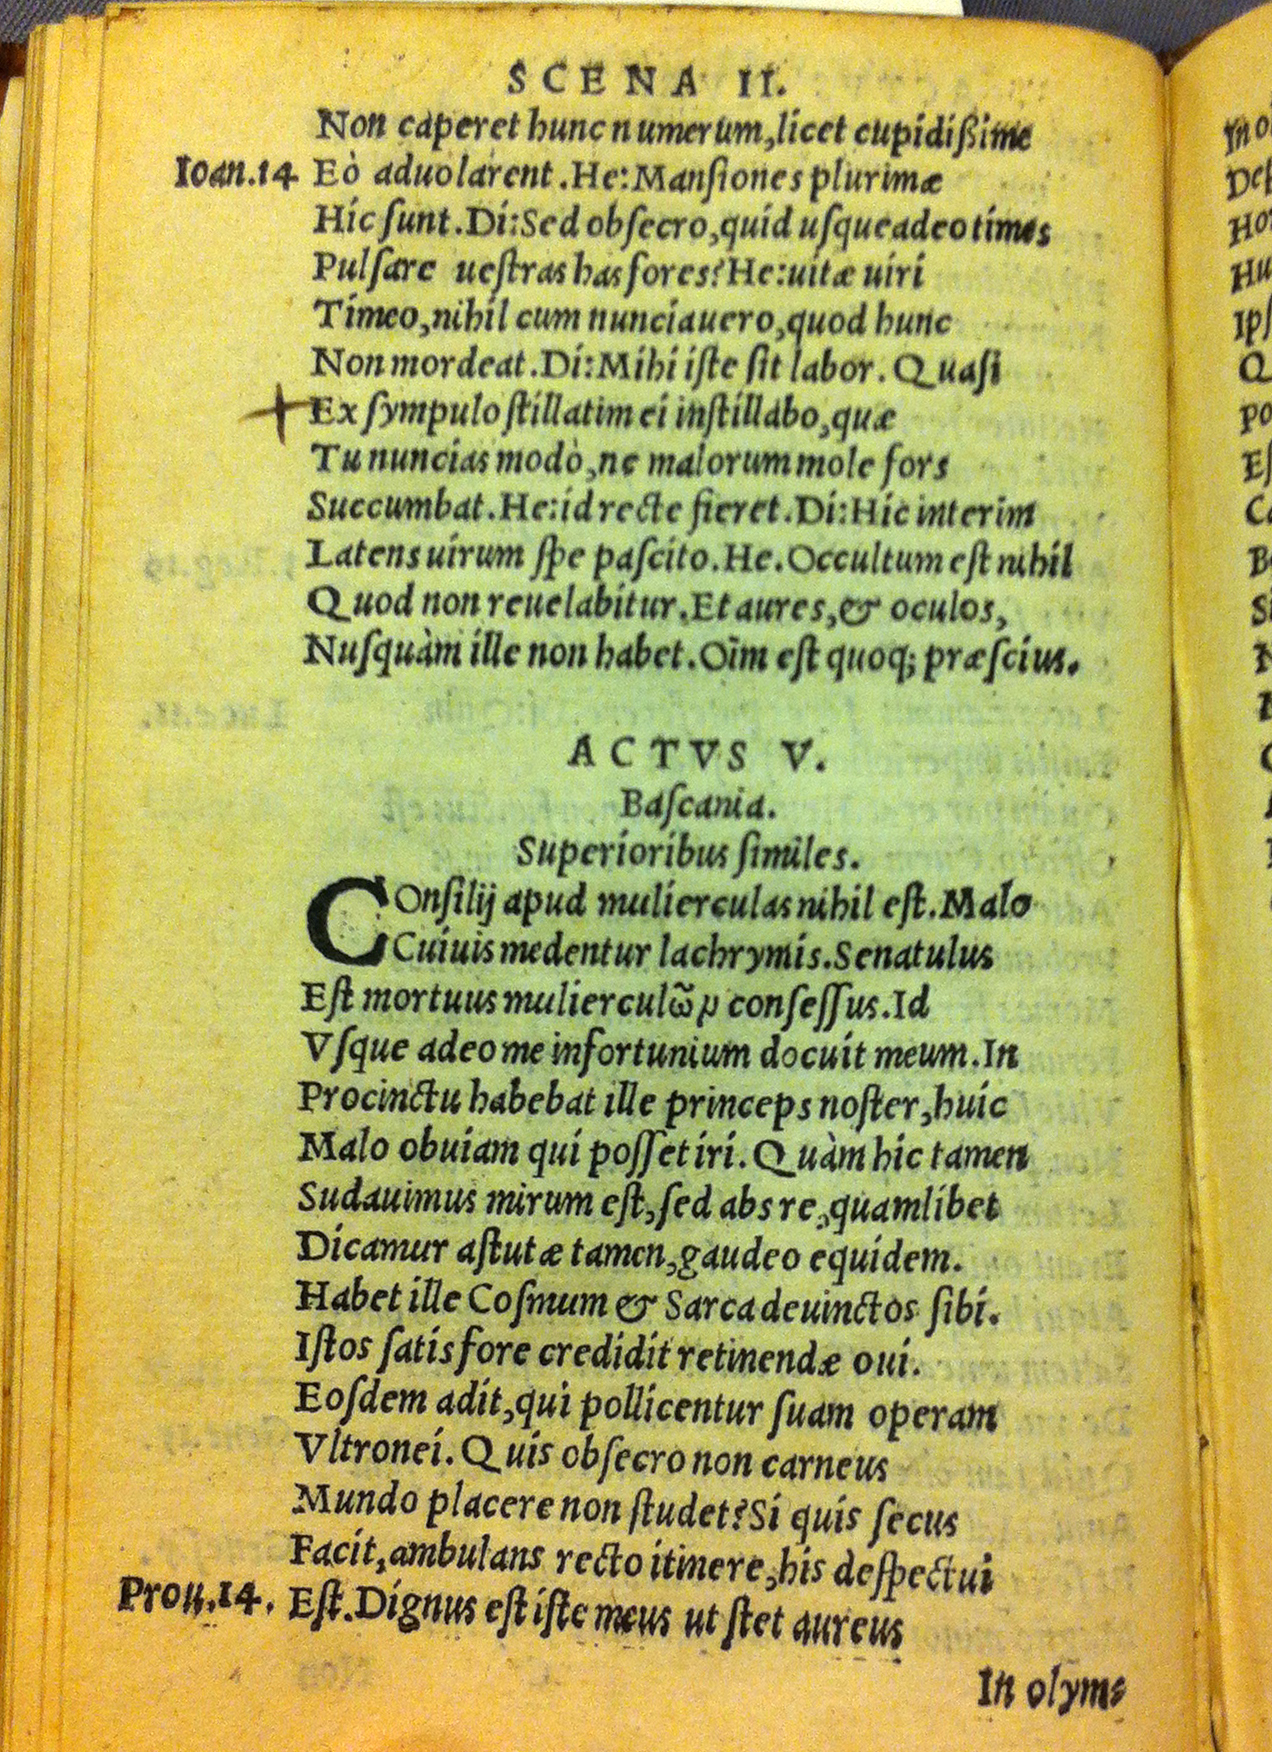 SCENA II.
Non caperet hunc numerum, licet cupidißime
Ioan.14 Eò aduolarent. He: Mansiones plurimæ
Hic sunt. Di: Sed obsecro, quid usque adeo times
Pulsare uestras has fores? He: uitæ uiri
Timeo, nihil cum nuncia uero, quod hunc
Non mordeat. Di: Mihi iste sit labor. Quasi
Ex sympulo stillatim ei instillabo, quæ
Tu nuncias modò, ne malorum mole fors
Succumbat. He: id recte fieret. Di: Hic interim
Latens uirum spe pascito. He. Occultum est nihil
Quod non reuelabitur. Et aures, & oculos,
Nusquàm ille non habet. Oīm est quoq; præscius.
ACTVS V.
Bascania.
Superioribus similes.
COnsilij apud mulierculas nihil est. Malo
Cuiuis medentur lachrymis. Senatulus
Est mortuus muliercul consessus. Id
Vsque adeo me infortunium docuit meum. In
Procinctu habebat ille princeps noster, huic
Malo obuiam qui posset iri. Quàm hic tamen
Sudauimus mirum est, sed abs re, quamlibet
Dicamur astutæ tamen, gaudeo equidem.
Habet ille Cosmum & Sarca deuinctos sibi.
Istos satis fore credidit retinendæ oui.
Eosdem adit, qui pollicentur suam operam
Vltronei. Quis obsecro non carneus
Mundo placere non studet? Si quis secus
Facit, ambulans recto itinere, his despectui
Prou.14. Est. Dignus est iste meus ut stet aureus
In olym